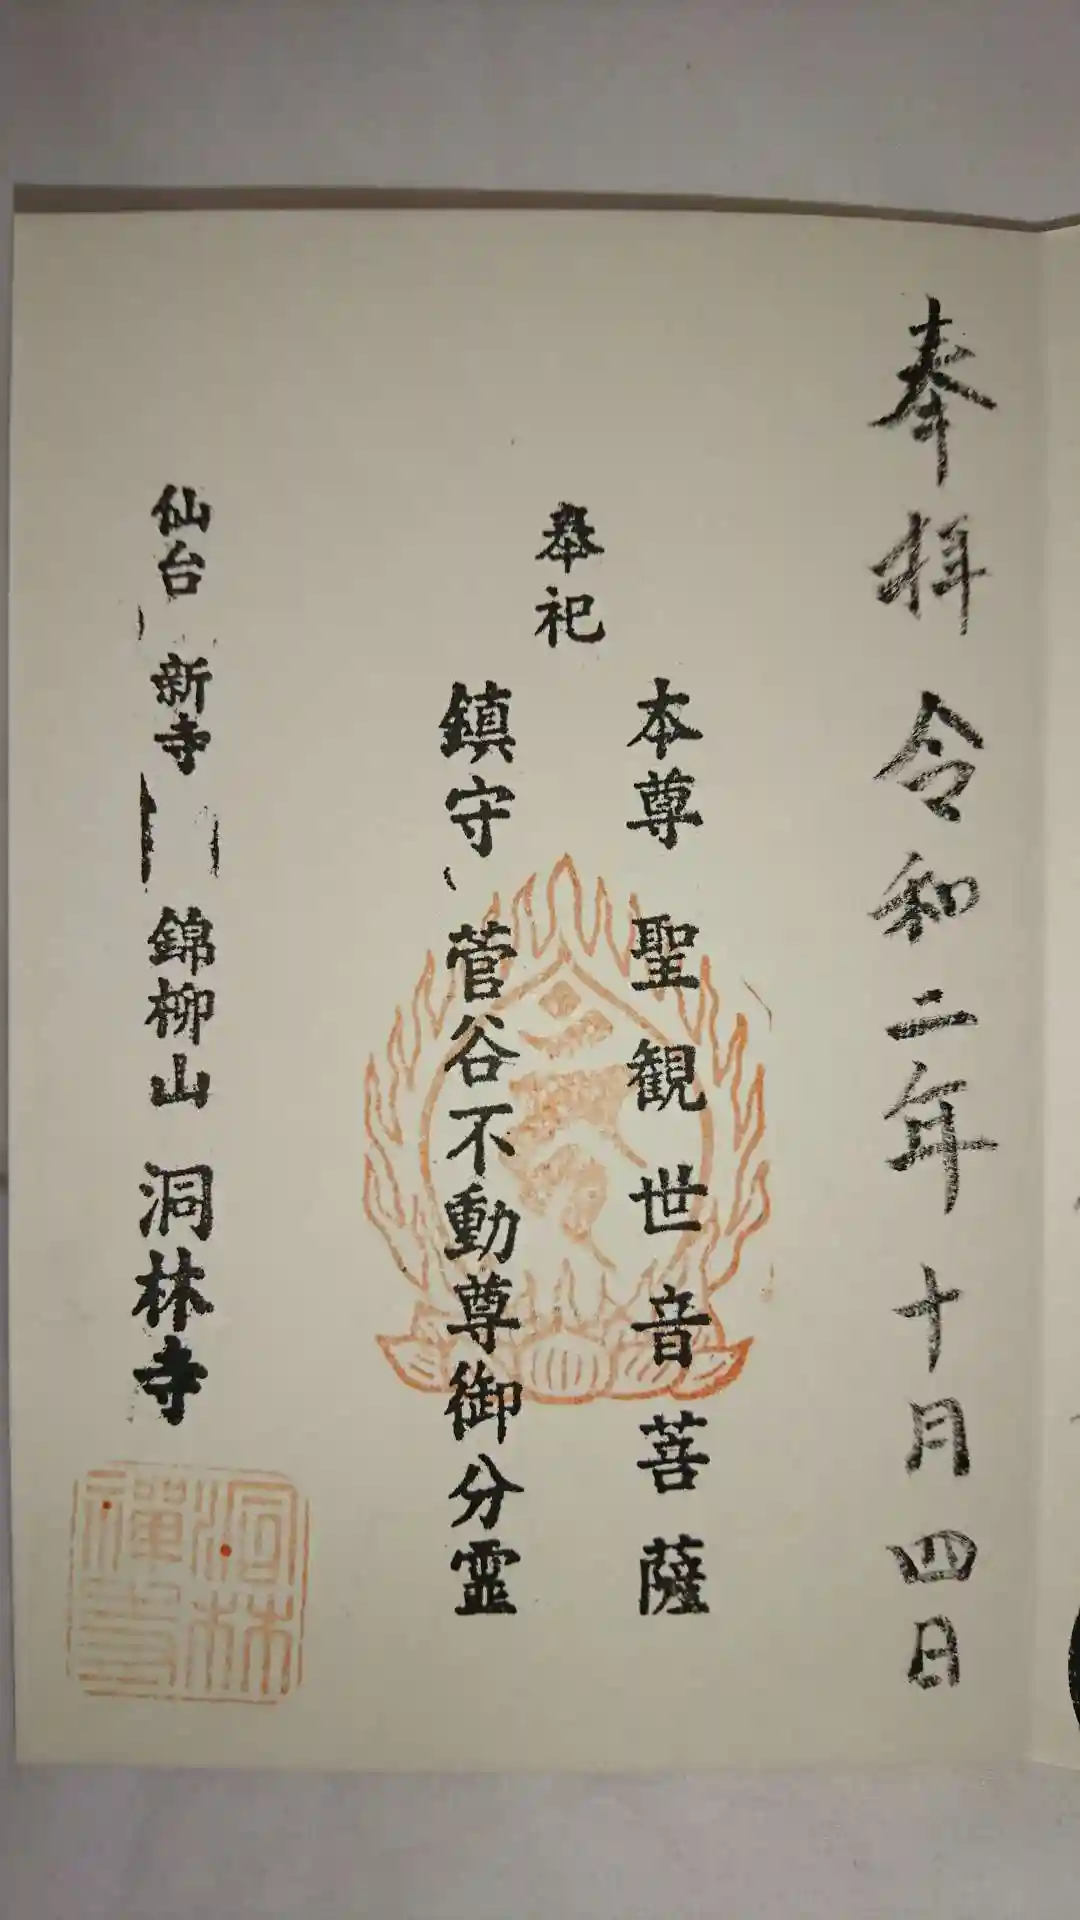 奉拝 令和二年 十月四日
奉祀
本尊 聖観世音菩薩
鎮守 菅谷不動尊御分霊
仙台 新寺 錦柳山 洞林寺
洞林
禅寺